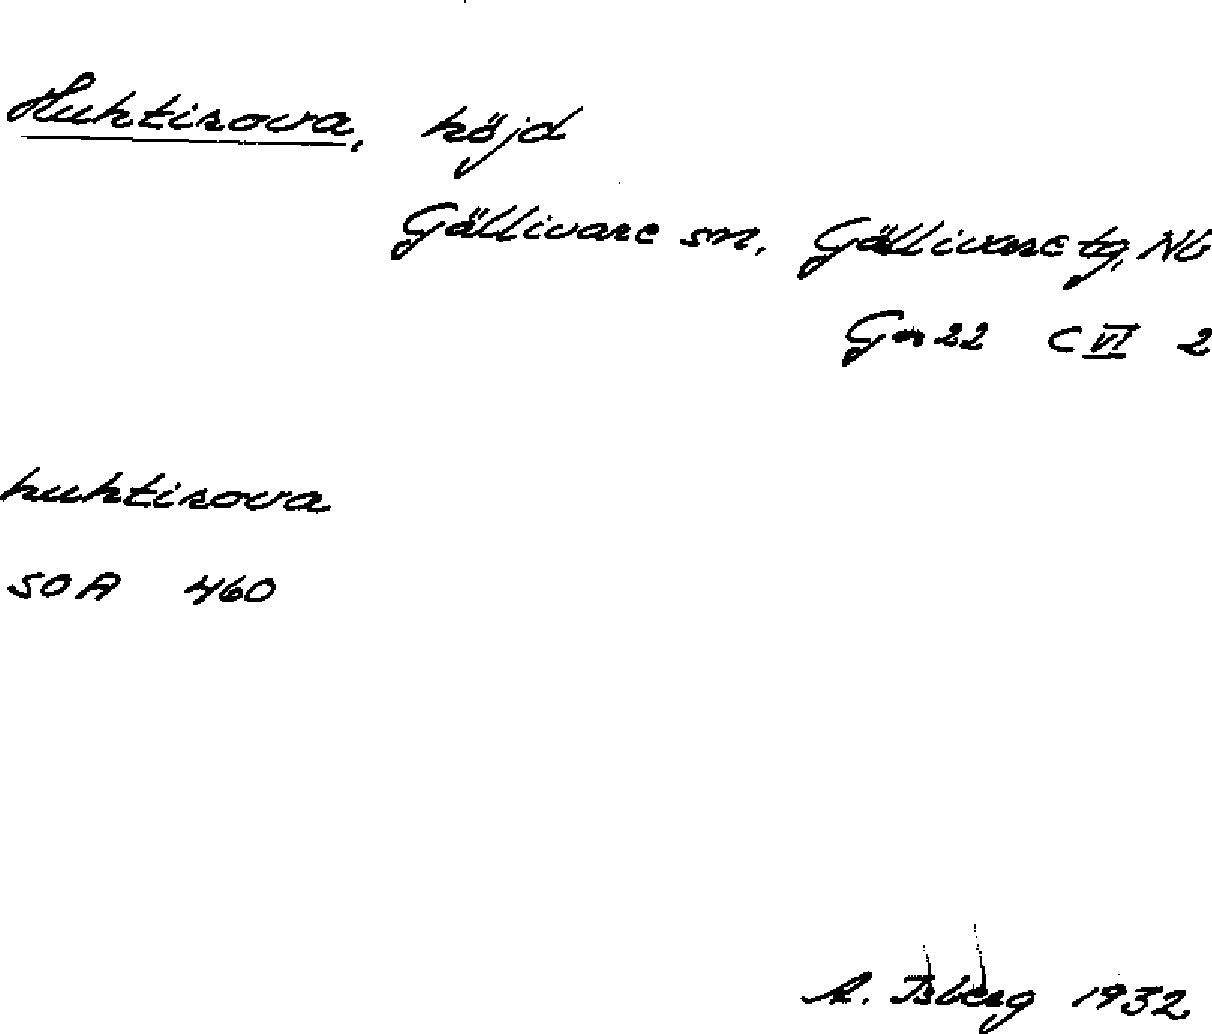 Huhtirova, höjd
Gällivare sn, Gällivare tg, Nb
Gm 22 C VI 2
huhtirova
SOA 460
A. Isberg 1932